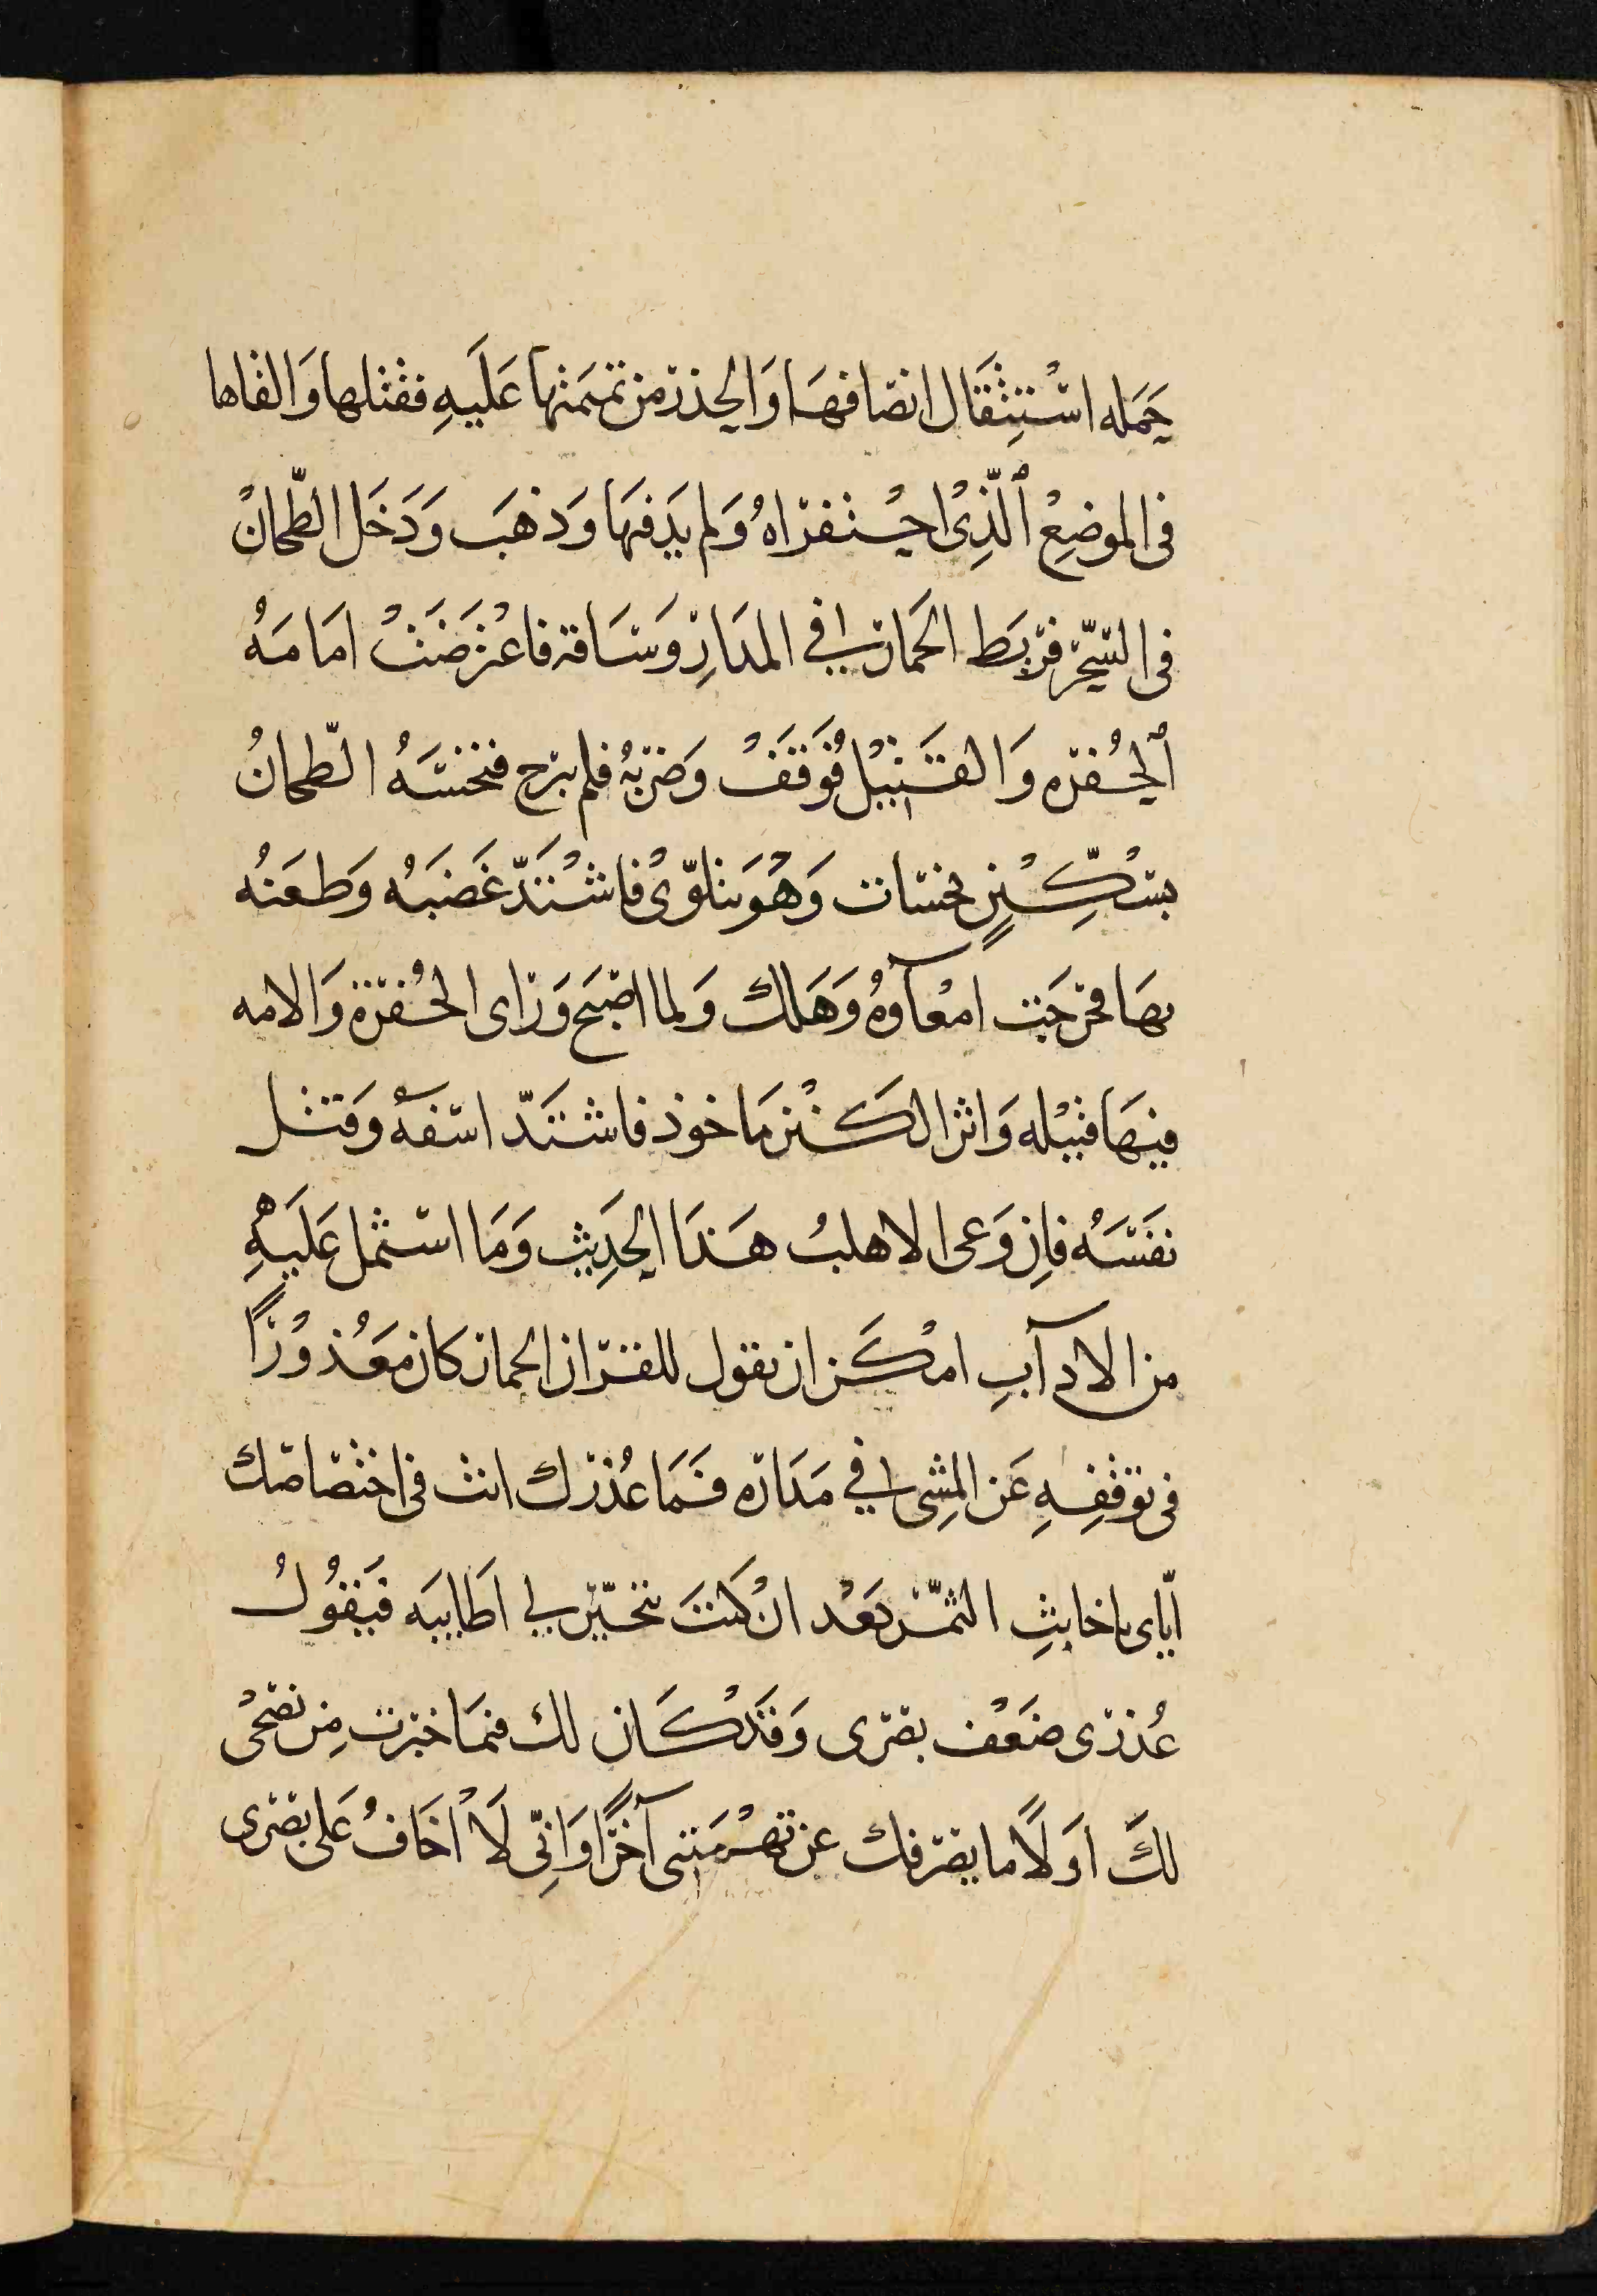 حَمَله استِثقَال انصافهَا وَالحذر من تمَمتها عَلَيهِ فقتلها وَالقاها
فى الموضِعْ الَّذِى احْـتفراهُ وَلم يدَفنهَا وَذهَبَ وَدَخَل الطّحانُ
فى السّحَر فرَبَط الحمَار فى المدَارِ وَسَاقه فاعْترضَتْ امَامَهُ
الحُـفره وَالقَـتيْل فوَقَفْ وَضربهُ فلم يبرح فنخسَهُ الطّحانُ
بسْكّـِينٍ نخسات وَهُوَ يتلوّىْ فاشْتدَّ غَضَبَه وَطعَنُه
بهَا فخرجَت امْعآوهُ وَهَلك وَلما اصْبَح وَرَاى الحُـفرَة وَالامه
فيهَا قتيْله وَاثر الكَـنْز مَاخوذ فاشتدَّ اسَفهُ وَقتـل
نفسَهُ فاِن وَعى الاهلبُ هَـذَا الحَدِيث وَمَا اشتمل عَلَيهِ
من الادآبِ امْكَـن ان يقول للقـراد ان الحمار كان مَعْذوْرًا
فى توَقفِـهِ عَن المشِى فى مَدَاره فَـمَا عُذرك انت فى اختصَاصَك
ايّاى باخابثِ الثمَّـر بَعْد انْ كنتَ تتَخـيّر لى اَطَايبَه فيَقُوْلُ
عُذرى ضَعْف بصَرى وَقَدْ كَـان لك فيمَا خبَرت مِن نصْحىْ
لكَ اوَلاً ما يصْرفك عن تهُـمَتى آخرًا وَانِّى لَا اخَافُ عَلى بصَرى